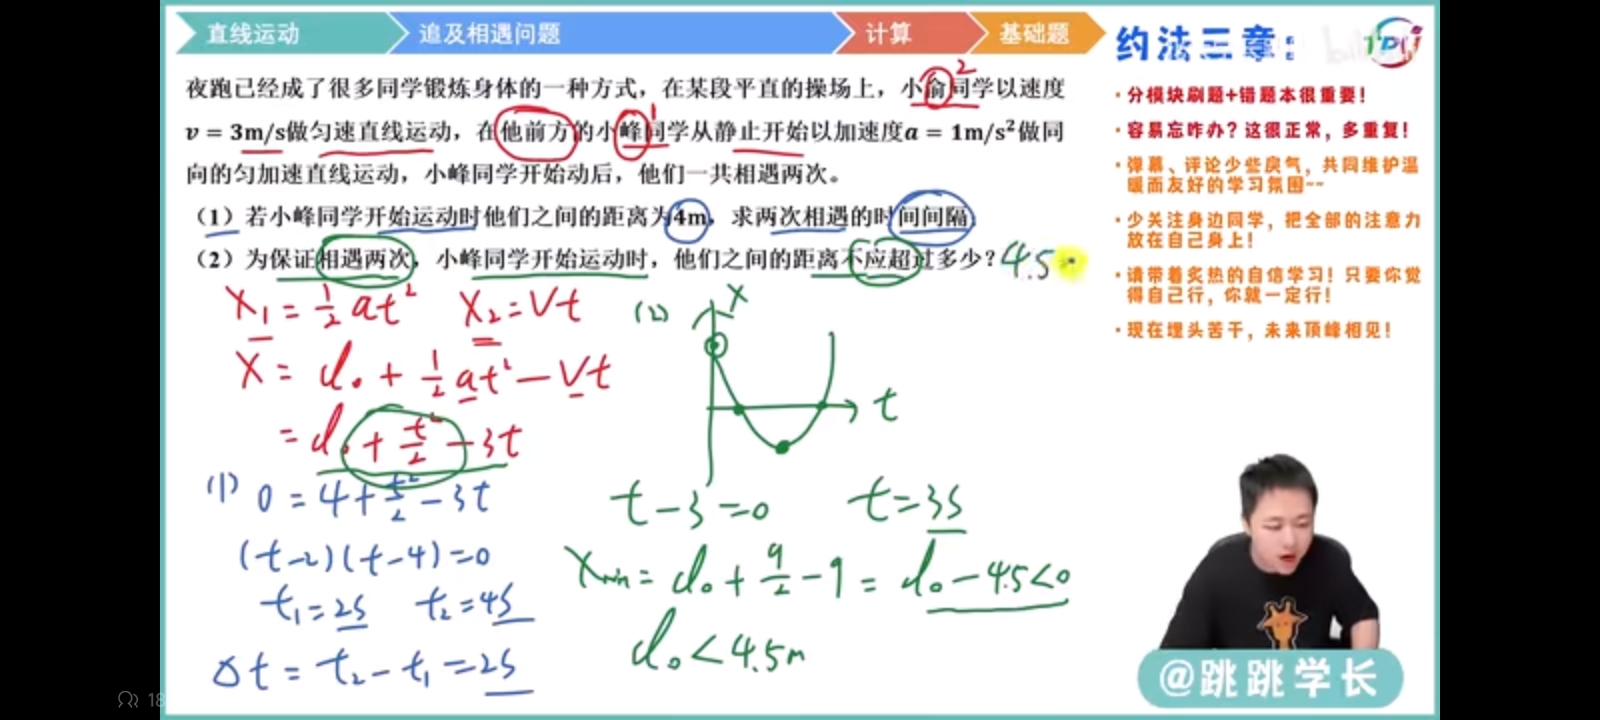 直线运动
追及相遇问题
计算
基础题
约法三章：
夜跑已经成了很多同学锻炼身体的一种方式，在某段平直的操场上，小俞同学以速度
v = 3m/s做匀速直线运动，在他前方的小峰同学从静止开始以加速度a = 1m/s²做同
向的匀加速直线运动，小峰同学开始动后，他们一共相遇两次。
（1）若小峰同学开始运动时他们之间的距离为4m，求两次相遇的时间间隔；
（2）为保证相遇两次，小峰同学开始运动时，他们之间的距离不应超过多少？4.5
2
1
x₁ = ½at² x₂ = vt
x = d₀ + ½at² - vt
= d₀ + t²/2 - 3t
(1) 0 = 4 + t²/2 - 3t
(t-2)(t-4)=0
t₁=2s t₂=4s
Δt = t₂ - t₁ = 2s
(2)
x
t
t-3=0 t=3s
xmin = d₀ + 9/2 - 9 = d₀ - 4.5<0
d₀ < 4.5m
· 分模块刷题+错题本很重要！
· 容易忘咋办？这很正常，多重复！
· 弹幕、评论少些戾气，共同维护温
暖而友好的学习氛围~~
· 少关注身边同学，把全部的注意力
放在自己身上！
· 请带着炙热的自信学习！只要你觉
得自己行，你就一定行！
· 现在埋头苦干，未来顶峰相见！
@跳跳学长
18